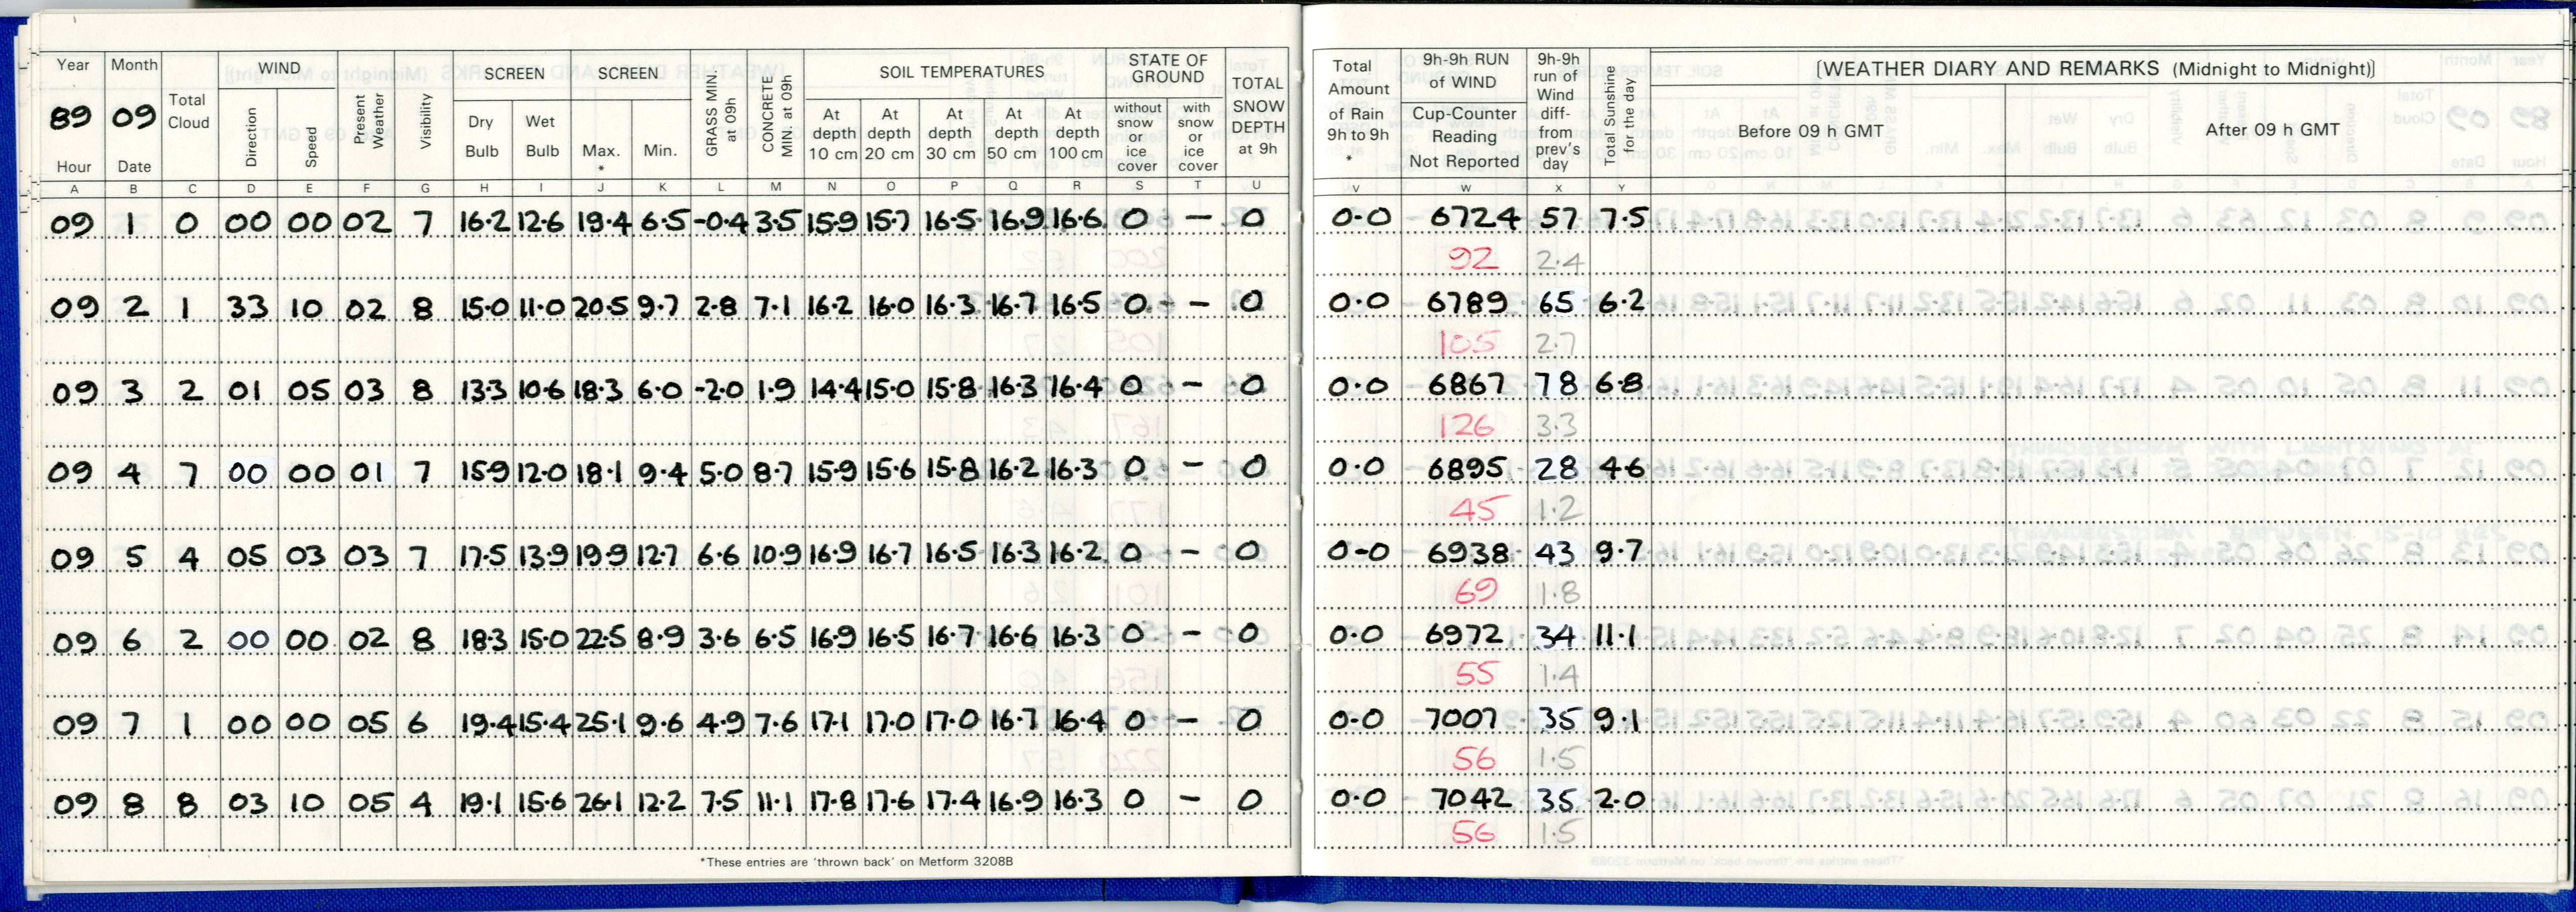 Year Month WIND SCREEN SCREEN SOIL TEMPERATURES STATE OF GROUND
89 09 Total Cloud Direction Speed Present Weather Visibility Dry Bulb Wet Bulb Max. * Min. GRASS MIN. at 09h CONCRETE MIN. at 09h At depth 10 cm At depth 20 cm At depth 30 cm At depth 50 cm At depth 100 cm without snow or ice cover with snow or ice cover TOTAL SNOW DEPTH at 9h
Hour Date
A B C D E F G H I J K L M N O P Q R S T U
09 1 0 00 00 02 7 16.2 12.6 19.4 6.5 -0.4 3.5 15.9 15.7 16.5 16.9 16.6 0 – 0
09 2 1 33 10 02 8 15.0 11.0 20.5 9.7 2.8 7.1 16.2 16.0 16.3 16.7 16.5 0 – 0
09 3 2 01 05 03 8 13.3 10.6 18.3 6.0 -2.0 1.9 14.4 15.0 15.8 16.3 16.4 0 – 0
09 4 7 00 00 01 7 15.9 12.0 18.1 9.4 5.0 8.7 15.9 15.6 15.8 16.2 16.3 0 – 0
09 5 4 05 03 03 7 17.5 13.9 19.9 12.7 6.6 10.9 16.9 16.7 16.5 16.3 16.2 0 – 0
09 6 2 00 00 02 8 18.3 15.0 22.5 8.9 3.6 6.5 16.9 16.5 16.7 16.6 16.3 0 – 0
09 7 1 00 00 05 6 19.4 15.4 25.1 9.6 4.9 7.6 17.1 17.0 17.0 16.7 16.4 0 – 0
09 8 8 03 10 05 4 19.1 15.6 26.1 12.2 7.5 11.1 17.8 17.6 17.4 16.9 16.3 0 – 0
*These entries are 'thrown back' on Metform 3208B
Total Amount of Rain 9h to 9h * 9h-9h RUN of WIND Cup-Counter Reading Not Reported 9h-9h run of Wind diff- from prev's day Total Sunshine for the day [WEATHER DIARY AND REMARKS (Midnight to Midnight)]
Before 09 h GMT After 09 h GMT
V W X Y
0.0 6724 57 7.5
92 2.4
0.0 6789 65 6.2
105 2.7
0.0 6867 78 6.8
126 3.3
0.0 6895 28 4.6
45 1.2
0-0 6938 43 9.7
69 1.8
0.0 6972 34 11.1
55 1.4
0.0 7007 35 9.1
56 1.5
0.0 7042 35 2.0
56 1.5